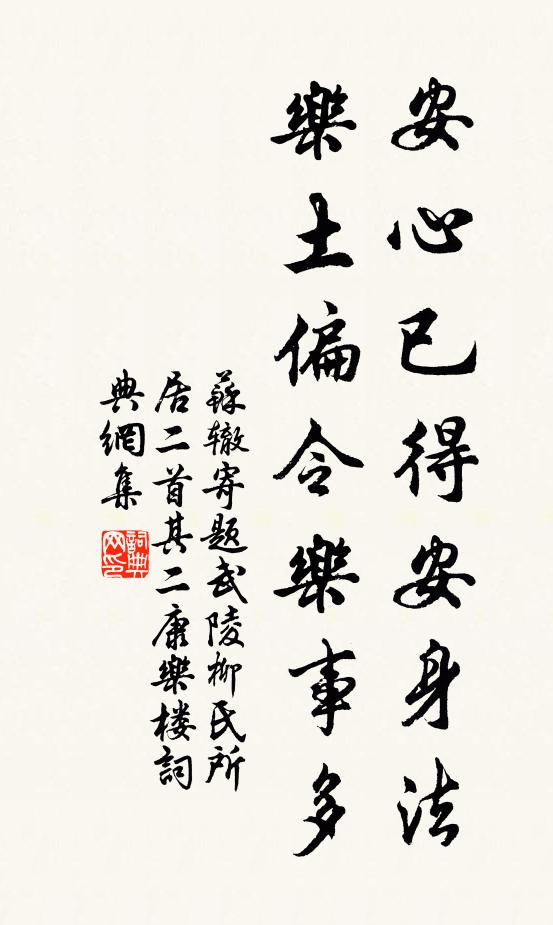 安心已得安身法
樂土偏令樂事多
蘇辙寄題武陵柳氏所
居二首其二康樂楼詞
典網集
詞典
网印